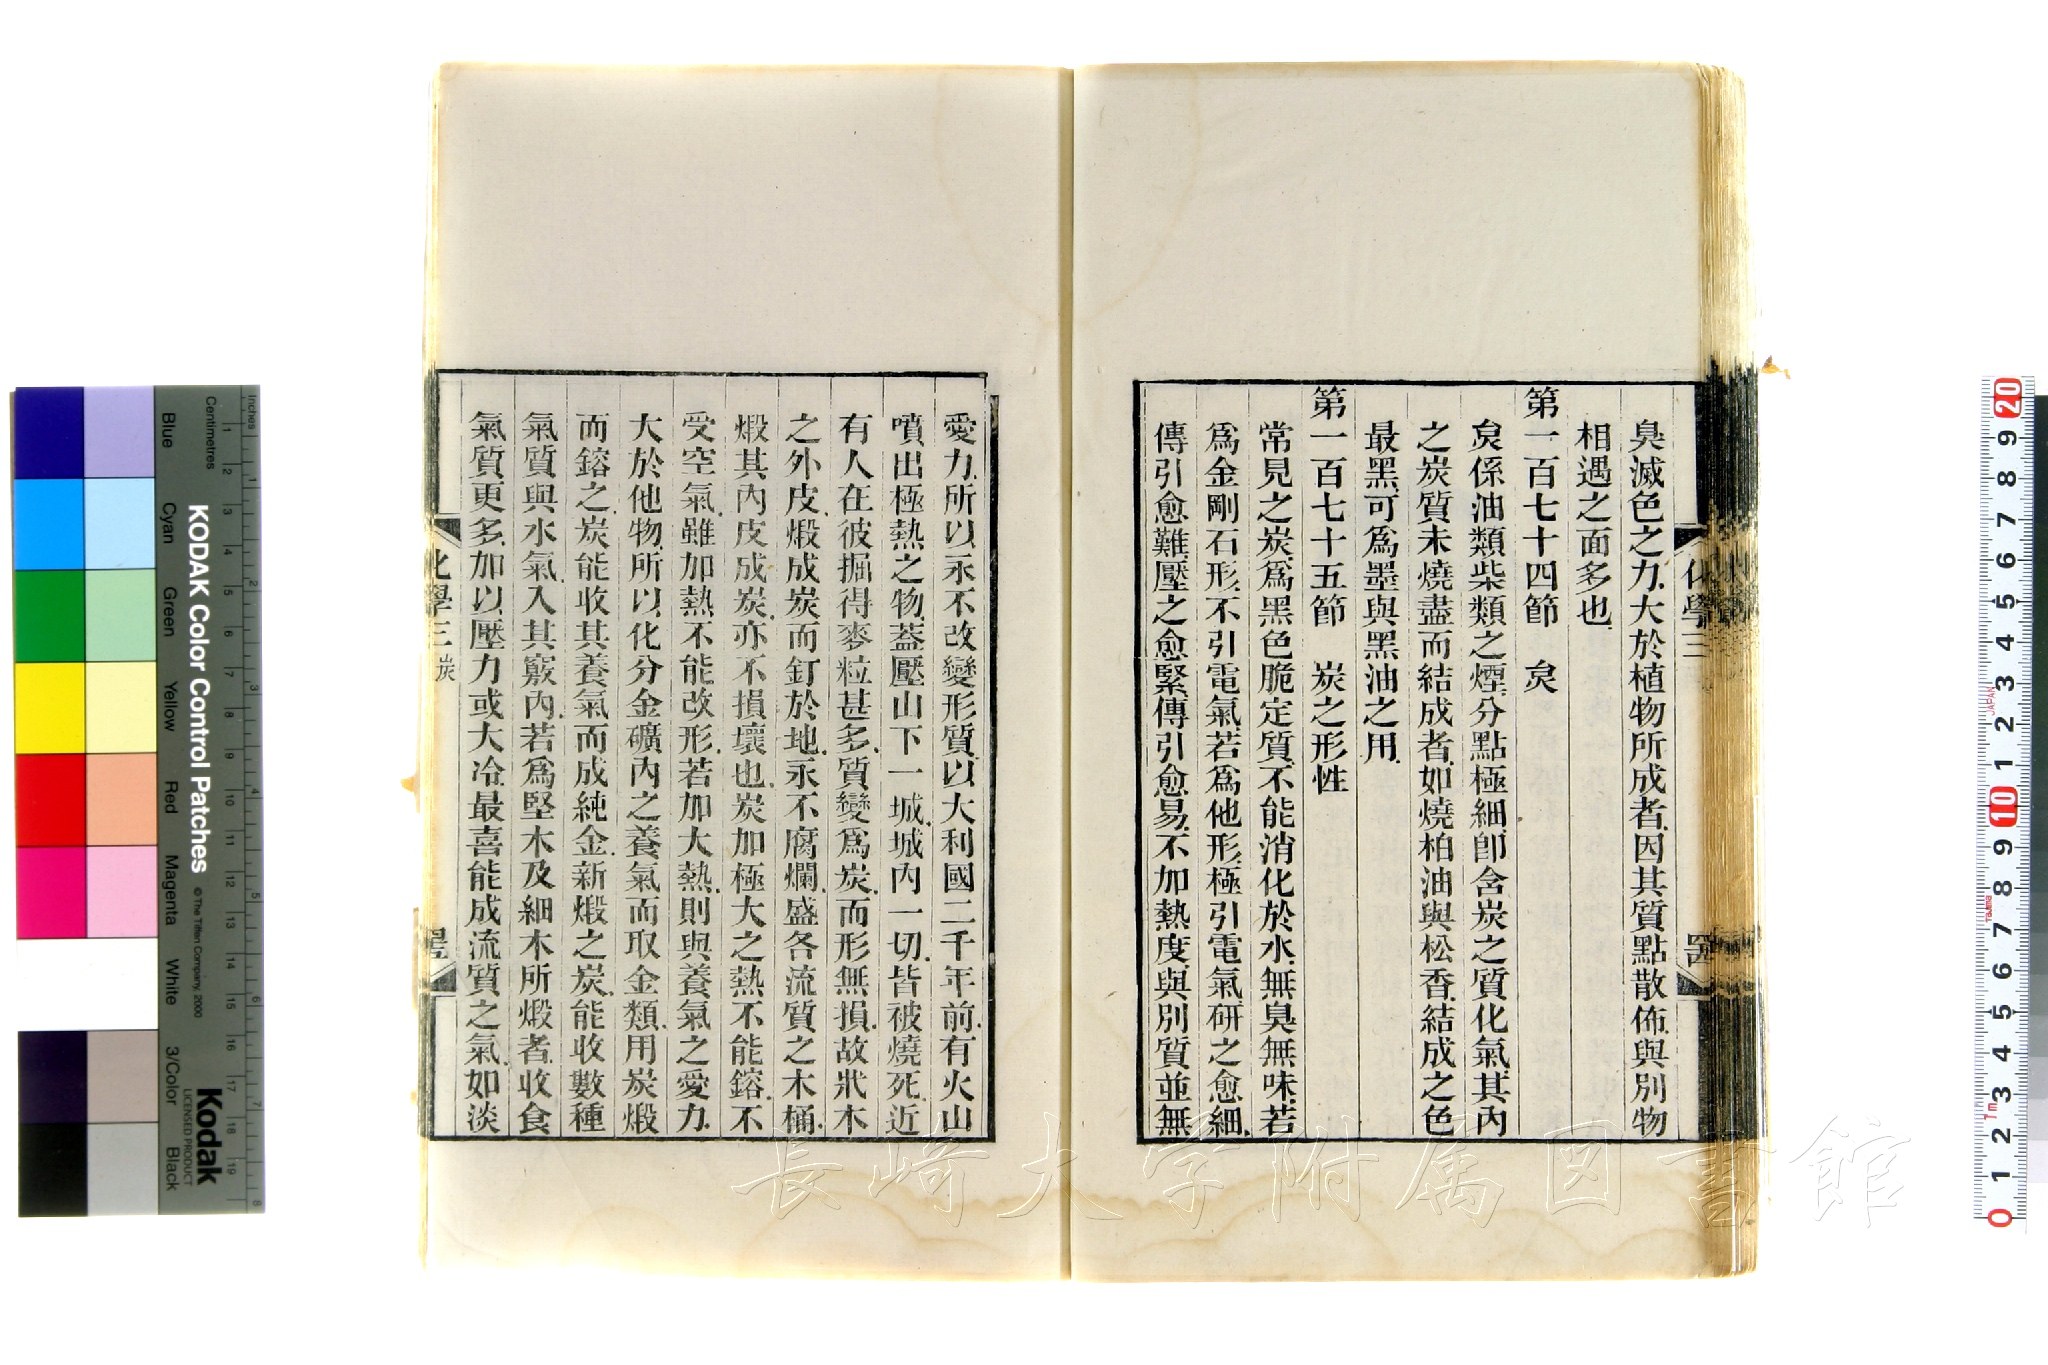 臭滅色之力、大於植物所成者、因其質點散佈、與別物
相遇之面多也、
第一百七十四節　炱
炱係油類柴類之煙、分點極細、卽含炭之質化氣、其內
之炭質未燒盡而結成者、如燒柏油與松香、結成之色
最黑、可爲墨與黑油之用、
第一百七十五節　炭之形性
常見之炭、爲黑色脆定質、不能消化於水、無臭無味、若
爲金剛石形、不引電氣、若爲他形、極引電氣、研之愈細、
傳引愈難、壓之愈緊、傳引愈易、不加熱度、與別質並無
化學三
愛力、所以永不改變形質、以大利國二千年前、有火山
噴出極熱之物、蓋壓山下一城、城內一切、皆被燒死、近
有人在彼掘得麥粒甚多、質變爲炭、而形無損、故狀木
之外皮、煅成炭而釘於地、永不腐爛、盛各流質之木桶、
煅其內皮成炭、亦不損壞也、炭加極大之熱、不能鎔、不
受空氣、雖加熱不能改形、若加大熱、則與養氣之愛力、
大於他物、所以化分金礦內之養氣而取金類、用炭煅
而鎔之、炭能收其養氣而成純金、新煅之炭、能收數種
氣質與水氣、入其竅內、若爲堅木及細木所煅者、收食
氣質更多、加以壓力或大冷、最喜能成流質之氣、如淡
化學三 炭
KODAK Color Control Patches
© The Tiffen Company, 2000
Kodak
LICENSED PRODUCT
Inches
Centimetres
Blue
Cyan
Green
Yellow
Red
Magenta
White
3/Color
Black
長崎大学附属図書館